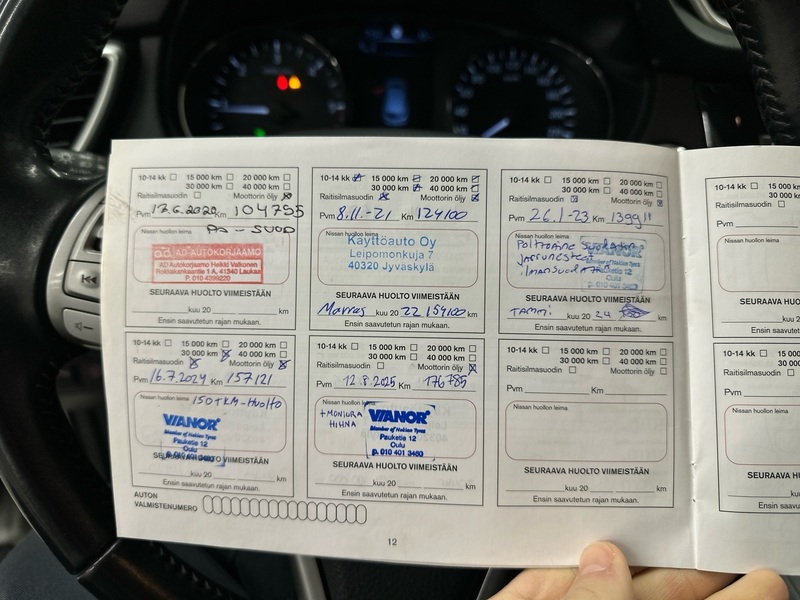 10-14 kk ☐ 15 000 km ☐ 20 000 km ☐
30 000 km ☐ 40 000 km ☐
Raitisilmasuodin ☐ Moottorin öljy ☒
Pvm 17.6.2020 Km 104795
PA-SUOD
Nissan huollon leima
AD AUTOKORJAAMO
AD Autokorjaamo Heikki Valkonen
41340 Laukaa
P. 010 4399220
SEURAAVA HUOLTO VIIMEISTÄÄN
kuu 20 km
Ensin saavutetun rajan mukaan.
10-14 kk ☒ 15 000 km ☒ 20 000 km ☒
30 000 km ☒ 40 000 km ☒
Raitisilmasuodin ☒ Moottorin öljy ☒
Pvm 8.11.-21 Km 124100
Nissan huollon leima
Käyttöauto Oy
Leipomonkuja 7
40320 Jyväskylä
SEURAAVA HUOLTO VIIMEISTÄÄN
Marras kuu 20 22 154100 km
Ensin saavutetun rajan mukaan.
10-14 kk ☐ 15 000 km ☐ 20 000 km ☐
30 000 km ☐ 40 000 km ☐
Raitisilmasuodin ☒ Moottorin öljy ☒
Pvm 26.1-23 Km 139911
Nissan huollon leima
Polttoaine suodatin
jarrunesteet
ilmansuodatin
VIANOR
Pauketie 12
Oulu
p. 010 401 3460
SEURAAVA HUOLTO VIIMEISTÄÄN
TAMMI kuu 20 24 km
Ensin saavutetun rajan mukaan.
10-14 kk ☐ 15 000
30 000
Raitisilmasuodin ☐
Pvm
Nissan huollon leima
SEURAAVA HU
Ensin s
10-14 kk ☐ 15 000 km ☐ 20 000 km ☐
30 000 km ☒ 40 000 km ☐
Raitisilmasuodin ☒ Moottorin öljy ☒
Pvm 16.7.2024 Km 157121
Nissan huollon leima 150TKM-HUOLTO
VIANOR
Member of Nokian Tyres
Pauketie 12
Oulu
p. 010 401 3460
SEURAAVA HUOLTO VIIMEISTÄÄN
kuu 20 km
Ensin saavutetun rajan mukaan.
10-14 kk ☐ 15 000 km ☐ 20 000 km ☐
30 000 km ☐ 40 000 km ☐
Raitisilmasuodin ☐ Moottorin öljy ☒
Pvm 12.8.2025 Km 176785
Nissan huollon leima
+MONIURA
HIHNA
VIANOR
Member of Nokian Tyres
Pauketie 12
Oulu
p. 010 401 3460
SEURAAVA HUOLTO VIIMEISTÄÄN
kuu 20 km
Ensin saavutetun rajan mukaan.
10-14 kk ☐ 15 000 km ☐ 20 000 km ☐
30 000 km ☐ 40 000 km ☐
Raitisilmasuodin ☐ Moottorin öljy ☐
Pvm Km
Nissan huollon leima
SEURAAVA HUOLTO VIIMEISTÄÄN
kuu 20 km
Ensin saavutetun rajan mukaan.
10-14 kk ☐ 15 000
30 000
Raitisilmasuodin ☐
Pvm
Nissan huollon leima
SEURAAVA HU
Ensin s
AUTON
VALMISTENUMERO
12